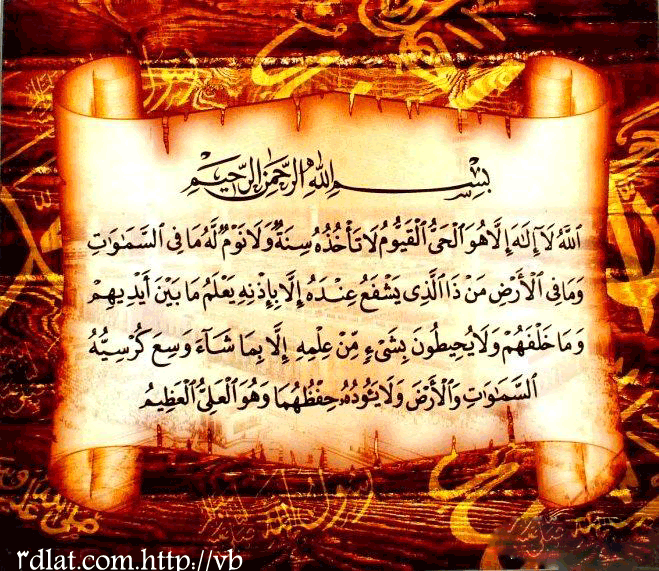 بِسْمِ اللهِ الرَّحْمٰنِ الرَّحِيْمِ
ٱللَّهُ لَآ إِلَٰهَ إِلَّا هُوَ ٱلْحَىُّ ٱلْقَيُّومُ لَا تَأْخُذُهُ سِنَةٌ وَلَا نَوْمٌ لَّهُ مَا فِى ٱلسَّمَٰوَٰتِ
وَمَا فِى ٱلْأَرْضِ مَن ذَا ٱلَّذِى يَشْفَعُ عِنْدَهُ إِلَّا بِإِذْنِهِ يَعْلَمُ مَا بَيْنَ أَيْدِيهِمْ
وَمَا خَلْفَهُمْ وَلَا يُحِيطُونَ بِشَىْءٍ مِّنْ عِلْمِهِ إِلَّا بِمَا شَآءَ وَسِعَ كُرْسِيُّهُ
ٱلسَّمَٰوَٰتِ وَٱلْأَرْضَ وَلَا يَـُٔودُهُ حِفْظُهُمَا وَهُوَ ٱلْعَلِىُّ ٱلْعَظِيمُ
رسول الله
rdlat.com.http://vb